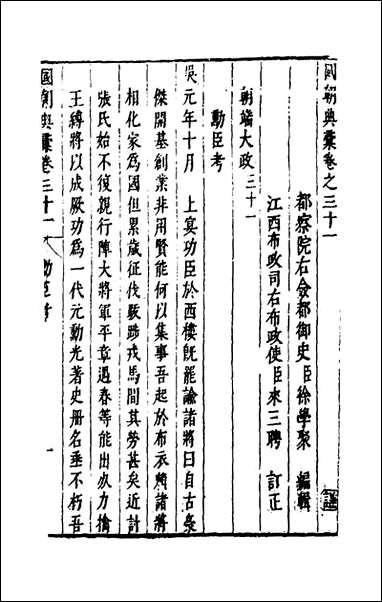 國朝典彙卷之三十一
都察院右僉都御史臣徐學聚 編輯
江西布政司右布政使臣來三聘 訂正
朝端大政三十一
勳臣考
吳元年十月 上宴功臣於西樓旣罷諭諸將曰自古豪
傑開基創業非用賢能何以集事吾起於布衣與諸將
相化家為國但累歲征伐驅踄戎馬間其勞甚矣近討
張氏始不復親行陣大將軍平章遇春等能出死力擒
王縛將以成厥功為一代元勳光著史册名垂不朽吾
國朝典彙卷三十一 勳臣考 一